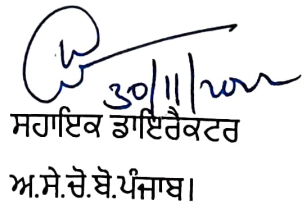 30/11/2022
ਸਹਾਇਕ ਡਾਇਰੈਕਟਰ
ਅ.ਸੇ.ਚੋ.ਬੋ.ਪੰਜਾਬ।